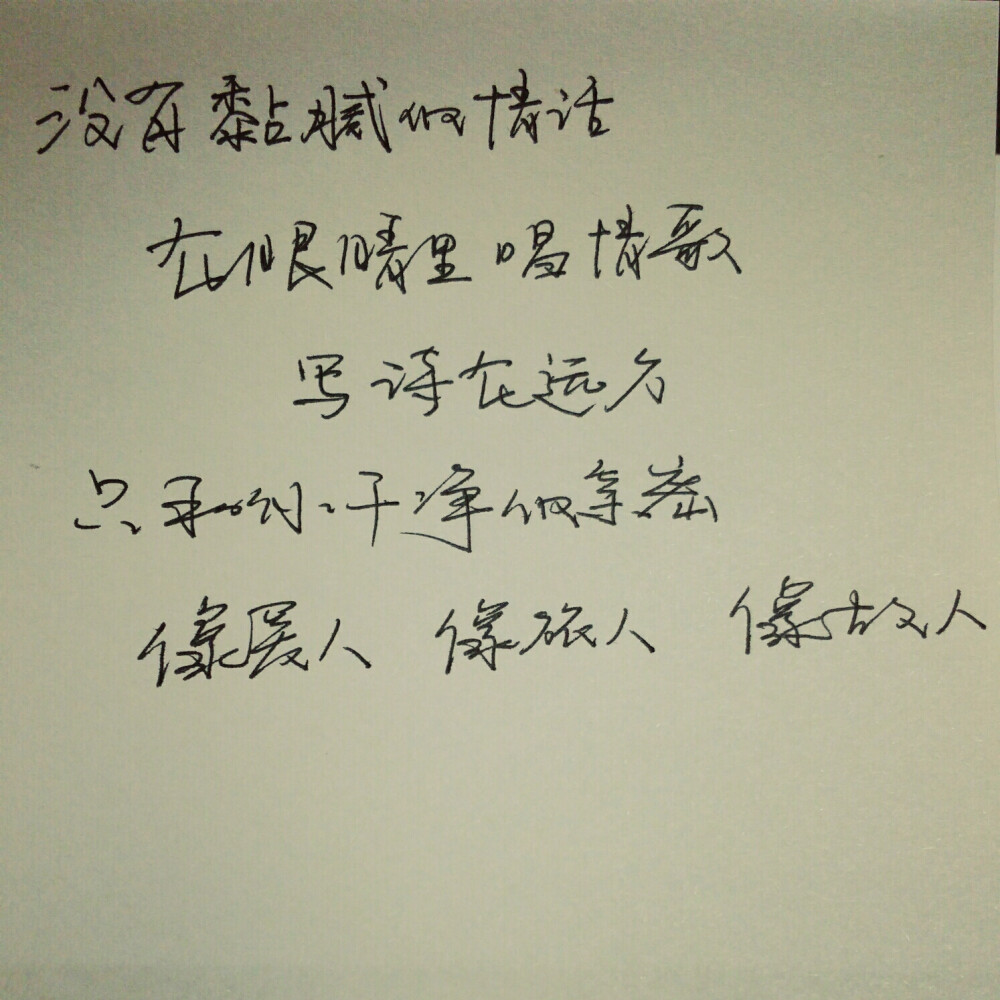 没有黏腻的情话
在眼睛里唱情歌
写诗在远方
只求干净的亲密
像爱人 像旅人 像故人